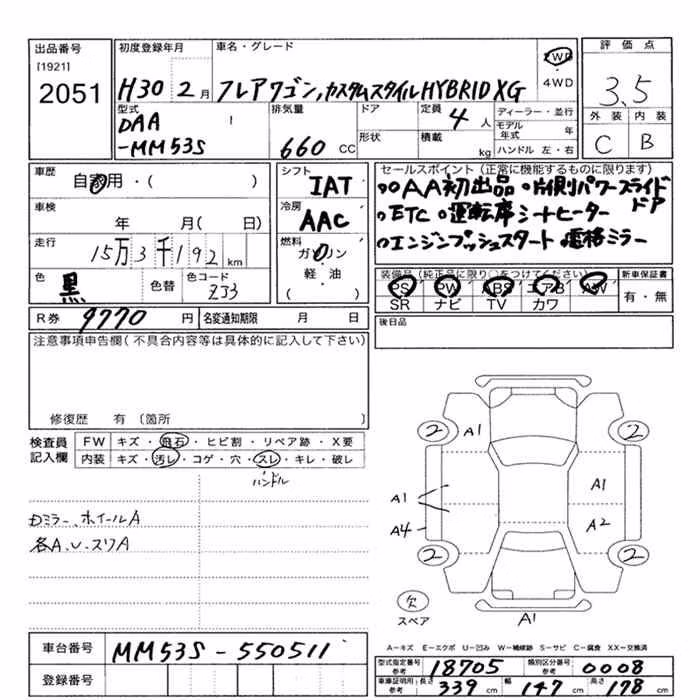 出品番号
[1921]
2051
初度登録年月
H30 2月
車名・グレード
フレアワゴン,カスタムスタイルHYBRID XG
2WD
・
4WD
評価点
3.5
外装 内装
C B
型式
DAA
-MM53S
排気量
660 CC
ドア
形状
定員 4人
積載 kg
ディーラー・並行
モデル年式 年
ハンドル 左・右
車歴
自家用・( )
車検
年 月( 日)
走行
15万3千192km
色
黒
色替
色コード
ZJ3
シフト
IAT
冷房
AAC
燃料
ガソリン
・
軽・油
( )
セールスポイント(正常に機能するものに限ります)
○○AA初出品 ○片側パワースライドドア
○ETC ○運転席シートヒーター
○エンジンプッシュスタート 電格ミラー
装備品(純正品に限り○をつけてください)
PS PW ABS エアB AW
SR ナビ TV カワ
新車保証書
有・無
R券 9770 円
名変通知期限 月 日
後日品
注意事項申告欄(不具合内容等は具体的に記入して下さい)
修復歴 有〔箇所 〕
検査員
記入欄
FW キズ・飛石・ヒビ割・リペア跡・X要
内装 キズ・汚レ・コゲ・穴・スレ・キレ・破レ
ハンドル
Dミラー、ホイールA
各A、U、スリA
2 A1 2
A1 A1
A4 A2
2 2
欠
スペア
A1
A-キズ E-エクボ U-凹み W-補修跡 S-サビ C-腐食 XX-交換済
車台番号 MM53S-550511
登録番号
型式指定番号
参考
18705
類別区分番号
参考
0008
車庫証明用
参考
長さ 339 cm 幅 147 cm 高さ 178 cm